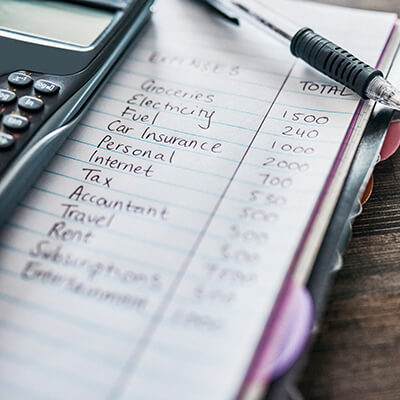 EXPENSES TOTAL
Groceries 1500
Electricity 240
Fuel 1000
Car Insurance 2000
Personal 700
Internet 550
Tax 500
Accountant
Travel
Rent
Subscriptions
Entertainment